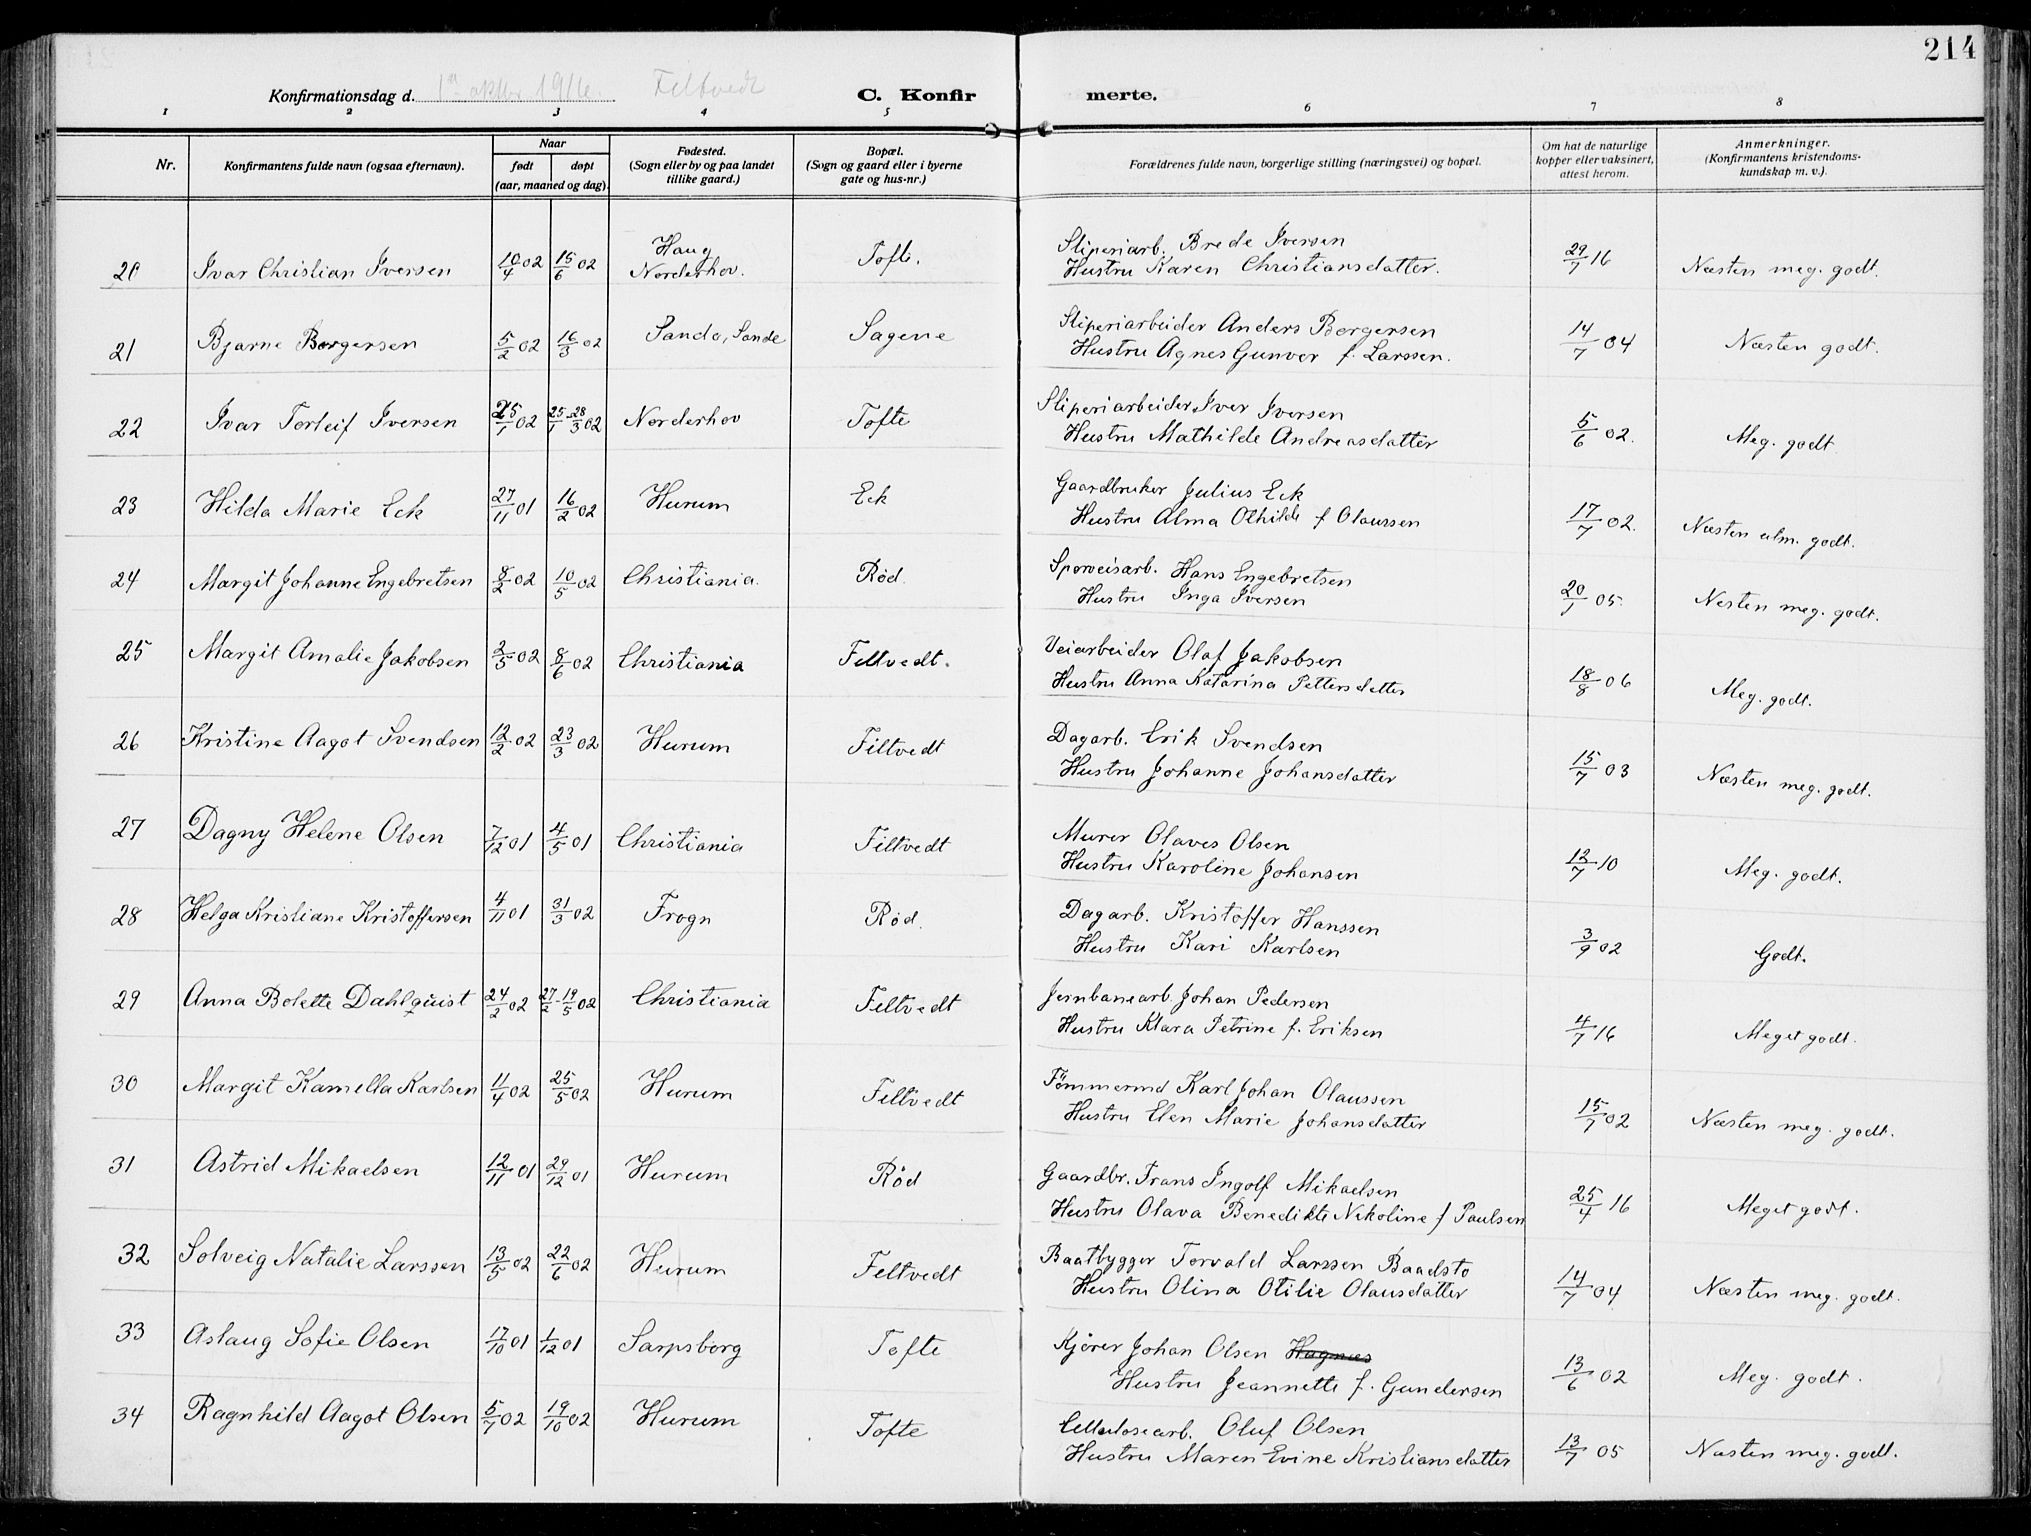 214
Konfirmationsdag d. 1ste oktbr. 1916. Feltvedt
C. Konfirmerte.
1 2 3 4 5 6 7 8
Nr.
Konfirmantens fulde navn (ogsaa efternavn).
Naar
født døpt
(aar, maaned og dag).
Fødested.
(Sogn eller by og paa landet
tillike gaard.)
Bopæl.
(Sogn og gaard eller i byerne
gate og hus-nr.)
Forældrenes fulde navn, borgerlige stilling (næringsvei) og bopæl.
Om hat de naturlige
kopper eller vaksinert,
attest herom.
Anmerkninger.
(Konfirmantens kristendoms-
kundskap m. v.).
20 Ivar Christian Iversen 10/4 02 15/6 02 Haug Norderhov. Tofte. Sliperiarb. Brede Iversen
Hustru Karen Christiansdatter. 29/7 16 Næsten meg. godt.
21 Bjarne Borgersen 5/2 02 16/3 02 Sando, Sande Sagene Sliperiarbeider Anders Borgersen
Hustru Agnes Gunvor f. Larssen. 14/7 04 Næsten godt.
22 Ivar Torleif Iversen 25/1 02 25/1-28/3 02 Norderhov Tofte Sliperiarbeider Iver Iversen
Hustru Mathilde Andreasdatter 5/6 02. Meg. godt
23 Hilda Marie Eek 27/11 01 16/2 02 Hurum Eek Gaardbruker Julius Eek
Hustru Alma Othilde f Olaussen 17/7 02. Næsten alm. godt.
24 Margit Johanne Engebretsen 8/2 02 10/5 02 Christiania. Rød. Sporveisarb. Hans Engebretsen
Hustru Inga Iversen 20/1 05. Nesten meg. godt.
25 Margit Amalie Jakobsen 2/5 02 8/6 02 Christiania Feltvedt. Veiarbeider Olaf Jakobsen
Hustru Anna Katarina Pettersdatter 18/8 06 Meg. godt.
26 Kristine Aagot Svendsen 12/2 02 23/3 02 Hurum Filtvedt Dagarb. Erik Svendsen
Hustru Johanne Johansdatter 15/7 03 Næsten meg. godt.
27 Dagny Helene Olsen 7/12 01 4/5 01 Christiania Filtvedt Murer Olaves Olsen
Hustru Karoline Johansen 12/7 10 Meg. godt.
28 Helga Kristiane Kristoffersen 4/11 01 31/3 02 Frogn Rød. Dagarb. Kristoffer Hanssen
Hustru Kari Karlsen 3/9 02 Godt.
29 Anna Bolette Dahlquist 24/2 02 27/2-19/5 02 Christiania Feltvedt Jernbanearb. Johan Pedersen
Hustru Klara Petrine f. Eriksen 4/7 16 Meget godt.
30 Margit Kamella Karlsen 11/4 02 25/5 02 Hurum Feltvedt Tømmermd Karl Johan Olaussen
Hustru Elen Marie Johansdatter 15/7 02 Næsten meg. godt.
31 Astrid Mikaelsen 12/11 01 29/12 01 Hurum Rød Gaardbr. Frans Ingolf Mikaelsen
Hustru Olava Benedikte Nikoline f Paulsen 25/4 16 Meget godt.
32 Solveig Natalie Larssen 13/5 02 22/6 02 Hurum Feltvedt Baatbygger Torvald Larssen Baadsto
Hustru Olina Otilie Olausdatter 14/7 04 Næsten meg. godt.
33 Aslaug Sofie Olsen 17/10 01 1/12 01 Sarpsborg Tofte Kjører Johan Olsen Hagnes
Hustru Jeannette f. Gundersen 13/6 02 Meg. godt.
34 Ragnhild Aagot Olsen 5/7 02 19/10 02 Hurum Tofte Cellulosearb. Oluf Olsen
Hustru Maren Evine Kristiansdatter 13/7 05 Næsten meg. godt.